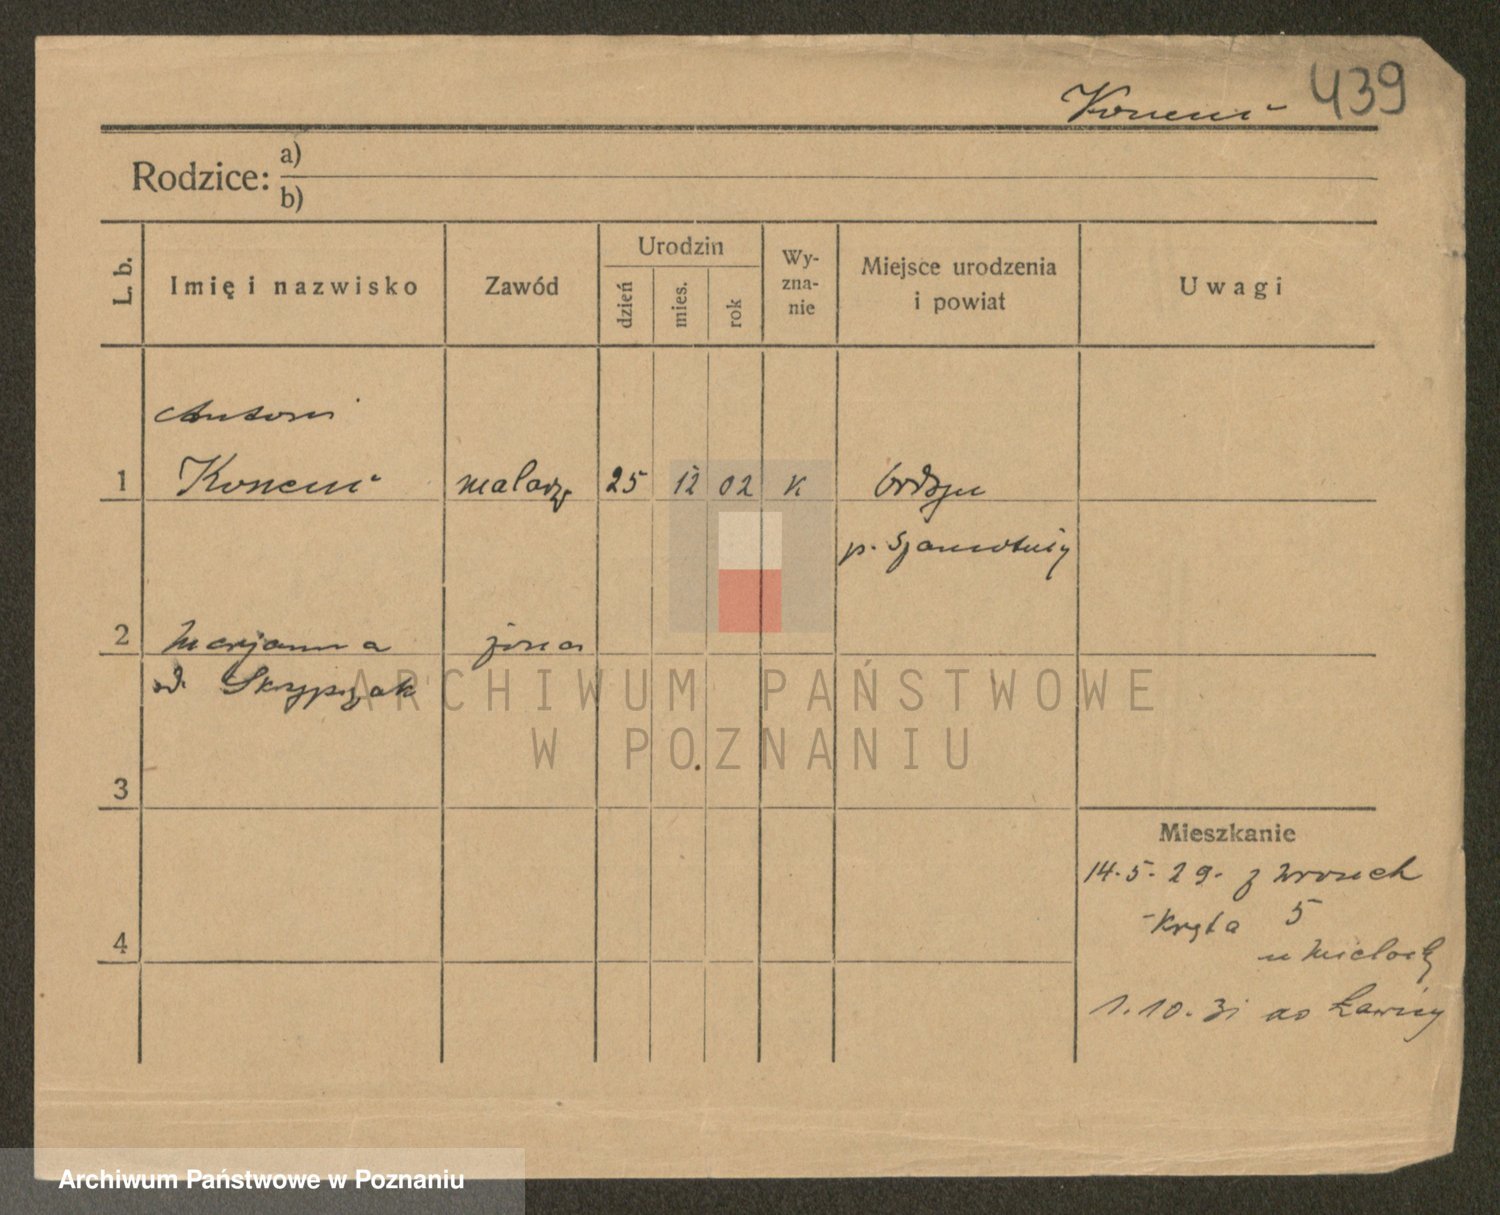 439
Rodzice: a)
b)
L. b.
Imię i nazwisko
Zawód
Urodzin
dzień
mies.
rok
Wy-
zna-
nie
Miejsce urodzenia
i powiat
Uwagi
Antoni
1 25 12 02 K
p. Szamotuły
2 Marjanna żona
Skrzypczak
3
4
Mieszkanie
14.5.29. z
Kręta 5
u
1.10.31 do Ławicy
ARCHIWUM PAŃSTWOWE
W POZNANIU
Archiwum Państwowe w Poznaniu